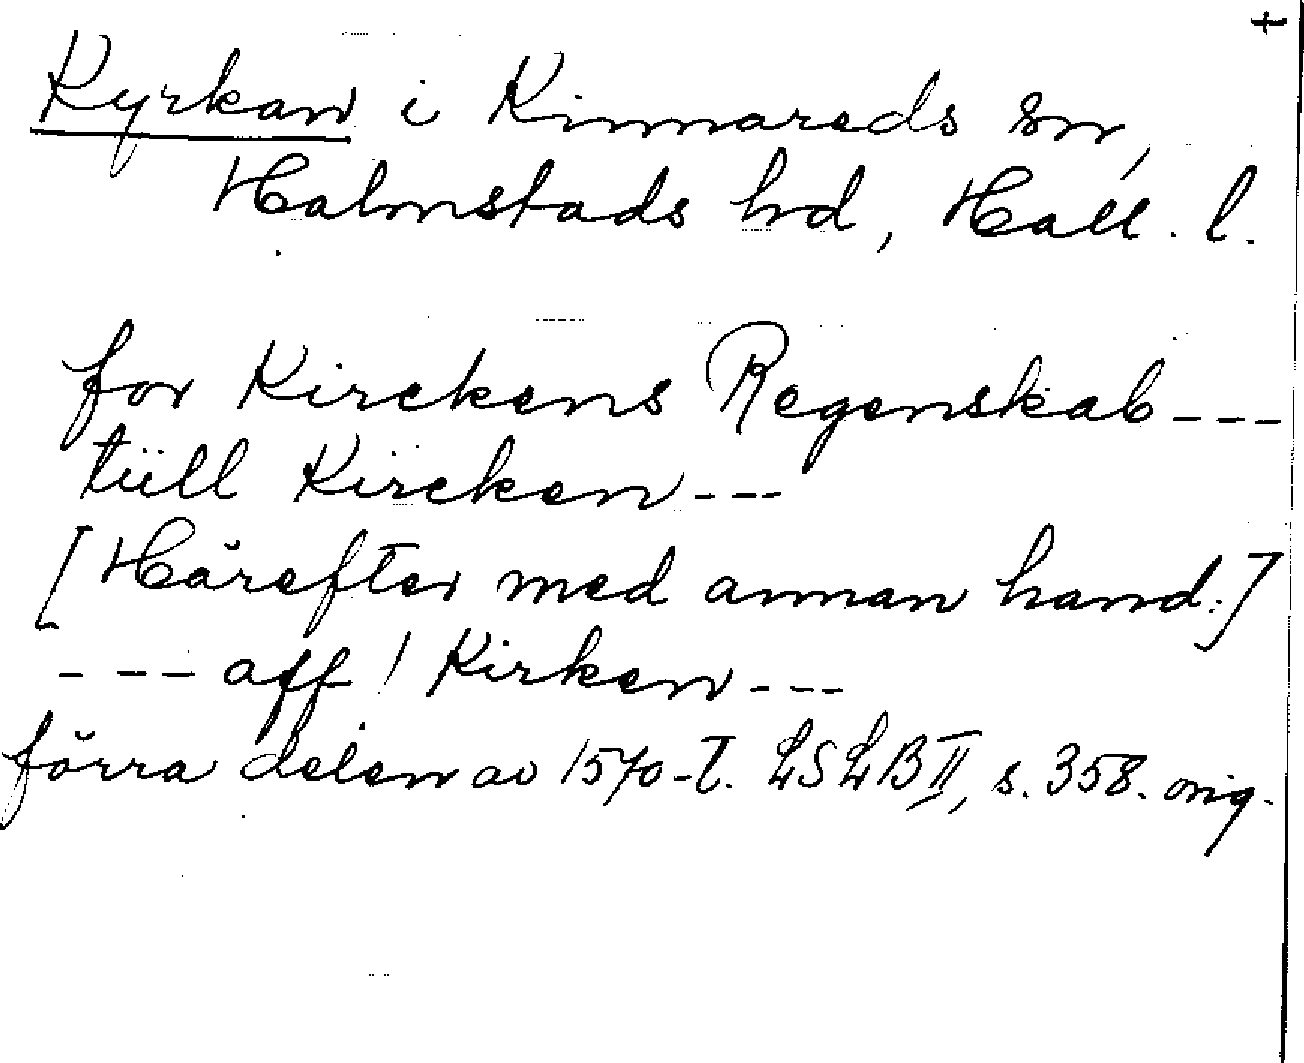 Kyrkan i Kinnareds sn,
Halmstads hd, Hall. l.
for Kirckens Regenskab---
tüll Kircken---
[Härefter med annan hand:]
--- aff ! Kirken---
förra delen av 1570-t. LSLB II, s. 358. orig.